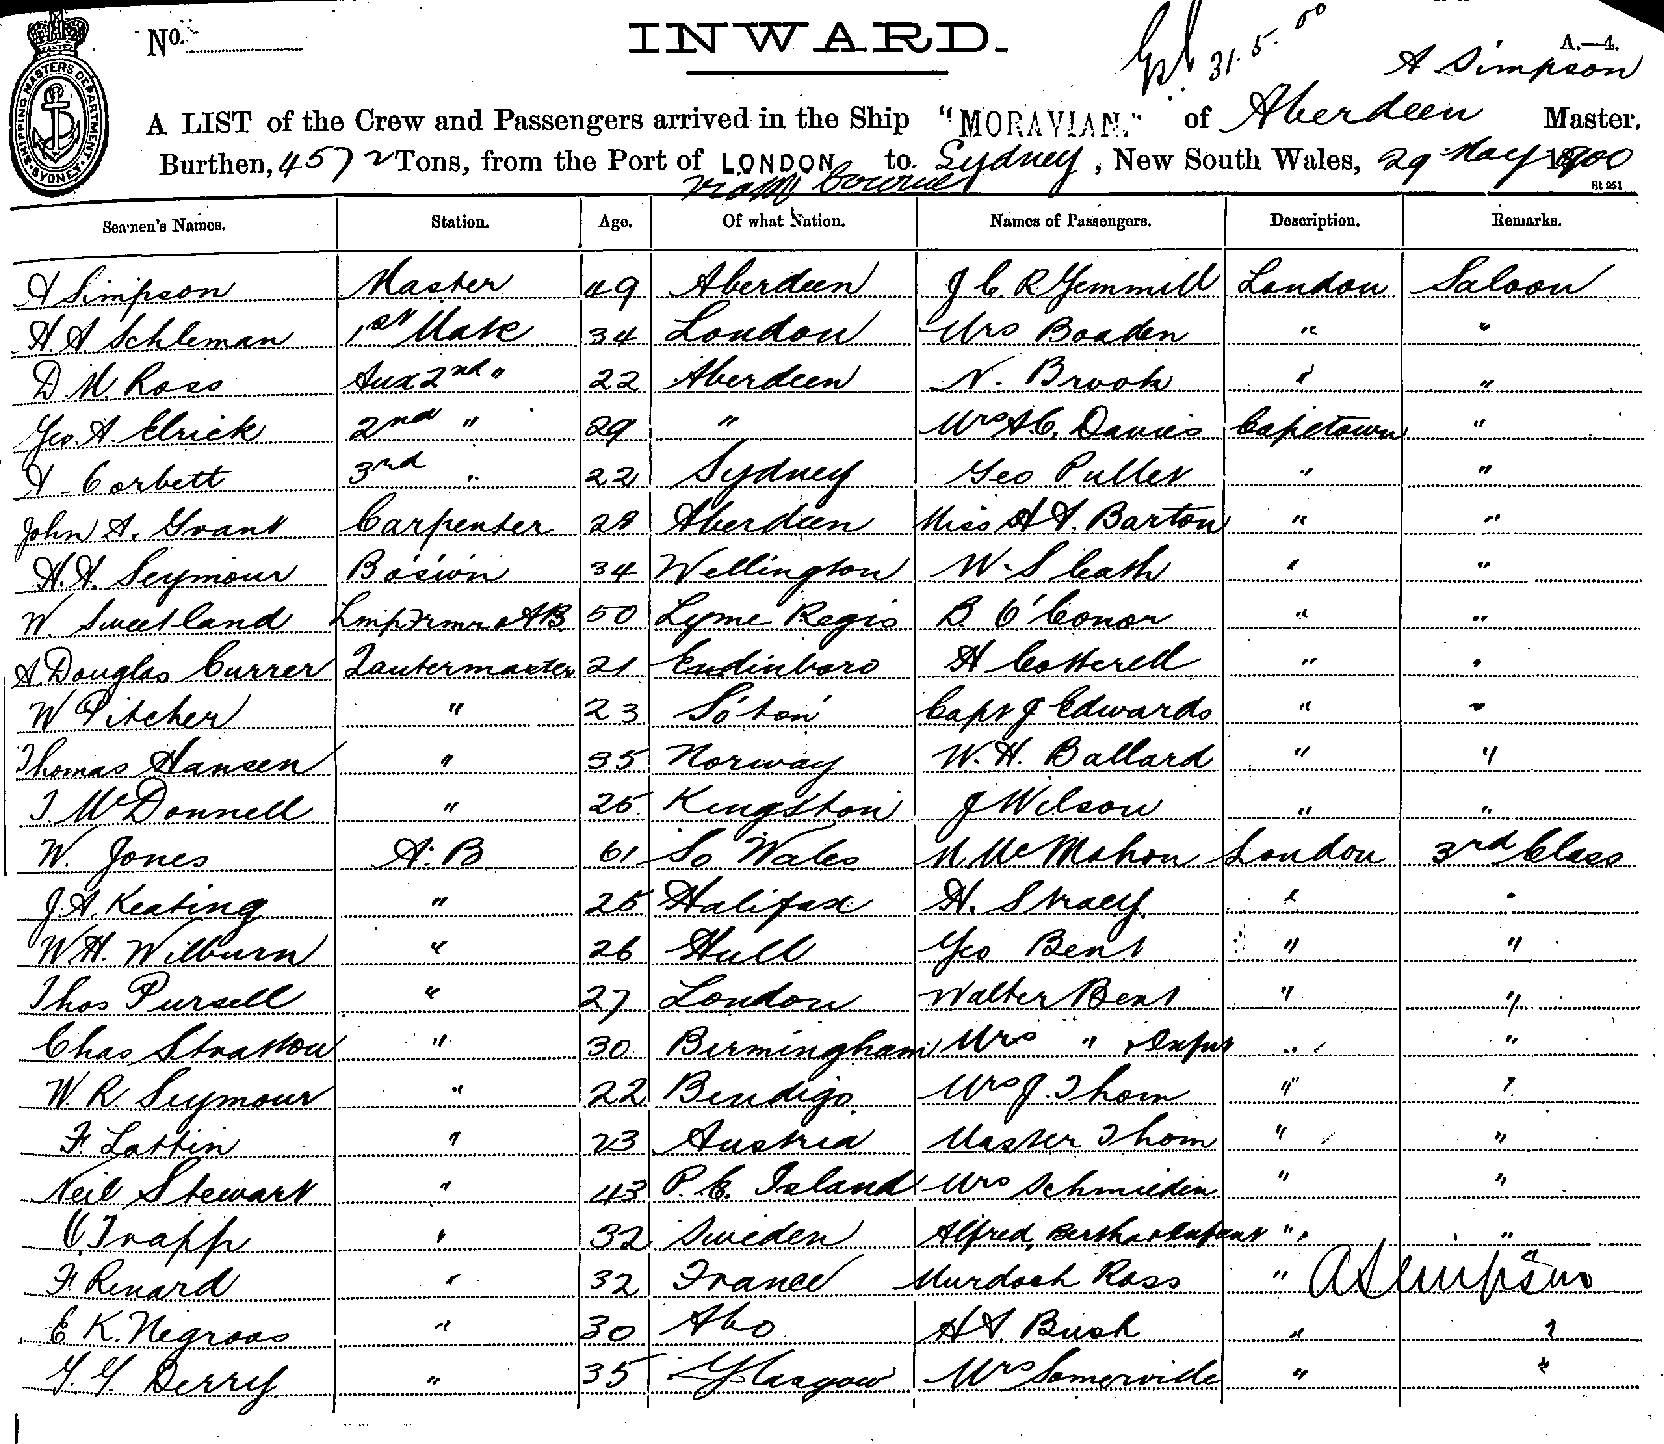 No. INWARD. 31.5.00 A.—4.
A Simpson
A LIST of the Crew and Passengers arrived in the Ship "MORAVIAN." of Aberdeen Master,
Burthen, 4572 Tons, from the Port of LONDON to Sydney, New South Wales, 29 May 1900
SHIPPING MASTERS DEPARTMENT SYDNEY
Seamen's Names. Station. Age. Of what Nation. Names of Passengers. Description. Remarks.
A Simpson Master 49 Aberdeen J C R Gemmill London Saloon
H A Schleman 1st Mate 34 London Mrs Boaden " "
D M Ross Aux 2nd " 22 Aberdeen N. Brook " "
Geo. A. Elrick 2nd " 29 " Mrs A C. Davies Capetown "
A Corbett 3rd " 22 Sydney Geo Puller " "
John A. Grant Carpenter 28 Aberdeen Miss A A. Barton " "
H. A. Seymour Bosiwn 34 Wellington W. S Cath " "
W Sweetland Lmptrmr & AB 50 Lyme Regis B O'Conor " "
A Douglas Currer Quatermaster 21 Endinboro H Cotterell " "
W Pitcher " 23 So'ton' Capt J Edwards " "
Thomas Hansen " 35 Norway W. H. Ballard " "
T McDonnell " 25 Kingston J Wilson " "
W. Jones A. B 61 So Wales M McMahon London 3rd Class
J. A. Keating " 25 Halifax H. Stracy. " "
W H. Wilburn " 26 Hull Geo Bent " "
Thos Pursell " 27 London Walter Bent " "
Chas Stratton " 30 Birmingham Mrs " & Infnt " "
W R. Seymour " 22 Bendigo. Mrs J. Thom " "
F Lattin " 23 Austria Master Thom " "
Neil Stewart " 43 P. E. Island Mrs Schmiedin " "
C. Trapp " 32 Sweden Alfred, Bertha & Infant " "
F Renard " 32 France Murdoch Ross " A Simpson
E K. Negroos " 30 Abo H A. Bush " "
G. G Berry " 35 Glasgow Mrs Somerville " "